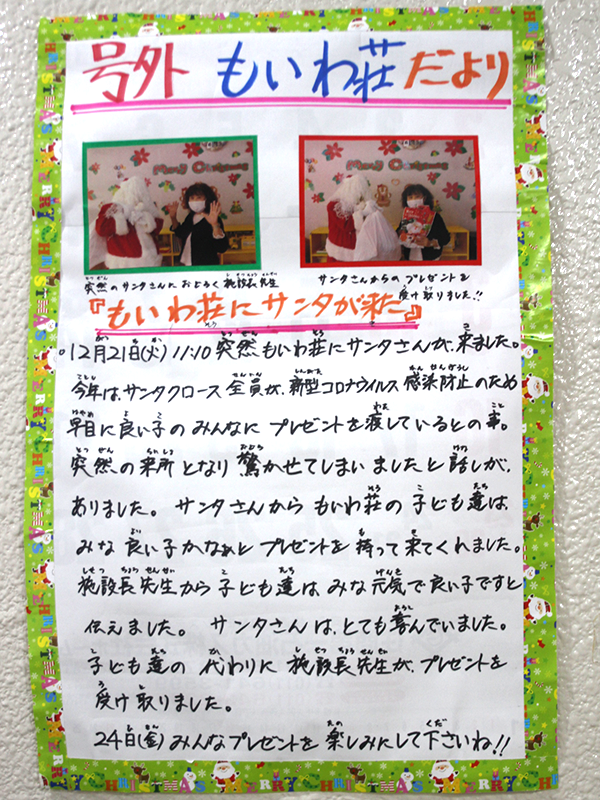 号外 もいわ荘だより
Merry Christmas
Merry Christmas
突然のサンタさんにおどろく施設長先生
サンタさんからのプレゼントを
受け取りました!!
『もいわ荘にサンタが来た』
。12月21日(火)11:10 突然もいわ荘にサンタさんが、来ました。
今年は、サンタクロース全員が、新型コロナウイルス感染防止のため
早目に良い子のみんなにプレゼントを渡しているとの事。
突然の来所となり驚かせてしまいましたと話しが、
ありました。サンタさんからもいわ荘の子ども達は、
みな良い子かなぁとプレゼントを持って来てくれました。
施設長先生から子ども達はみな元気で良い子ですと
伝えました。サンタさんは、とても喜んでいました。
子ども達の代わりに施設長先生が、プレゼントを
受け取りました。
24日(金)みんなプレゼントを楽しみにして下さいね!!
MERRY CHRISTMAS